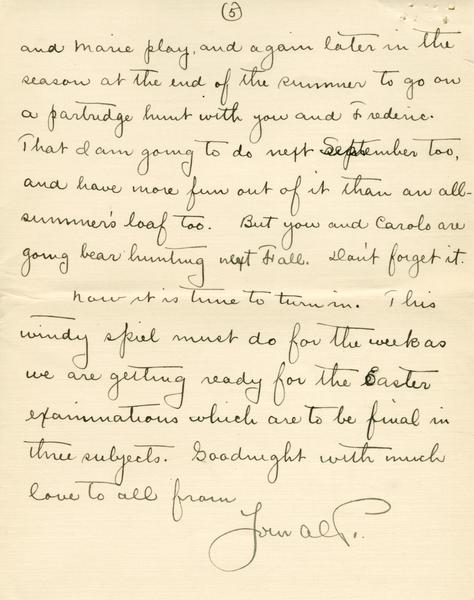 (5)
and Marie play, and again later in the
season at the end of the summer to go on
a partridge hunt with you and Frederic.
That I am going to do next September too,
and have more fun out of it than an all-
summer's loaf too. But you and Carolo are
going bear hunting next Fall. Don't forget it.
Now it is time to turn in. This
windy spiel must do for the week as
we are getting ready for the Easter
examinations which are to be final in
three subjects. Goodnight with much
love to all from